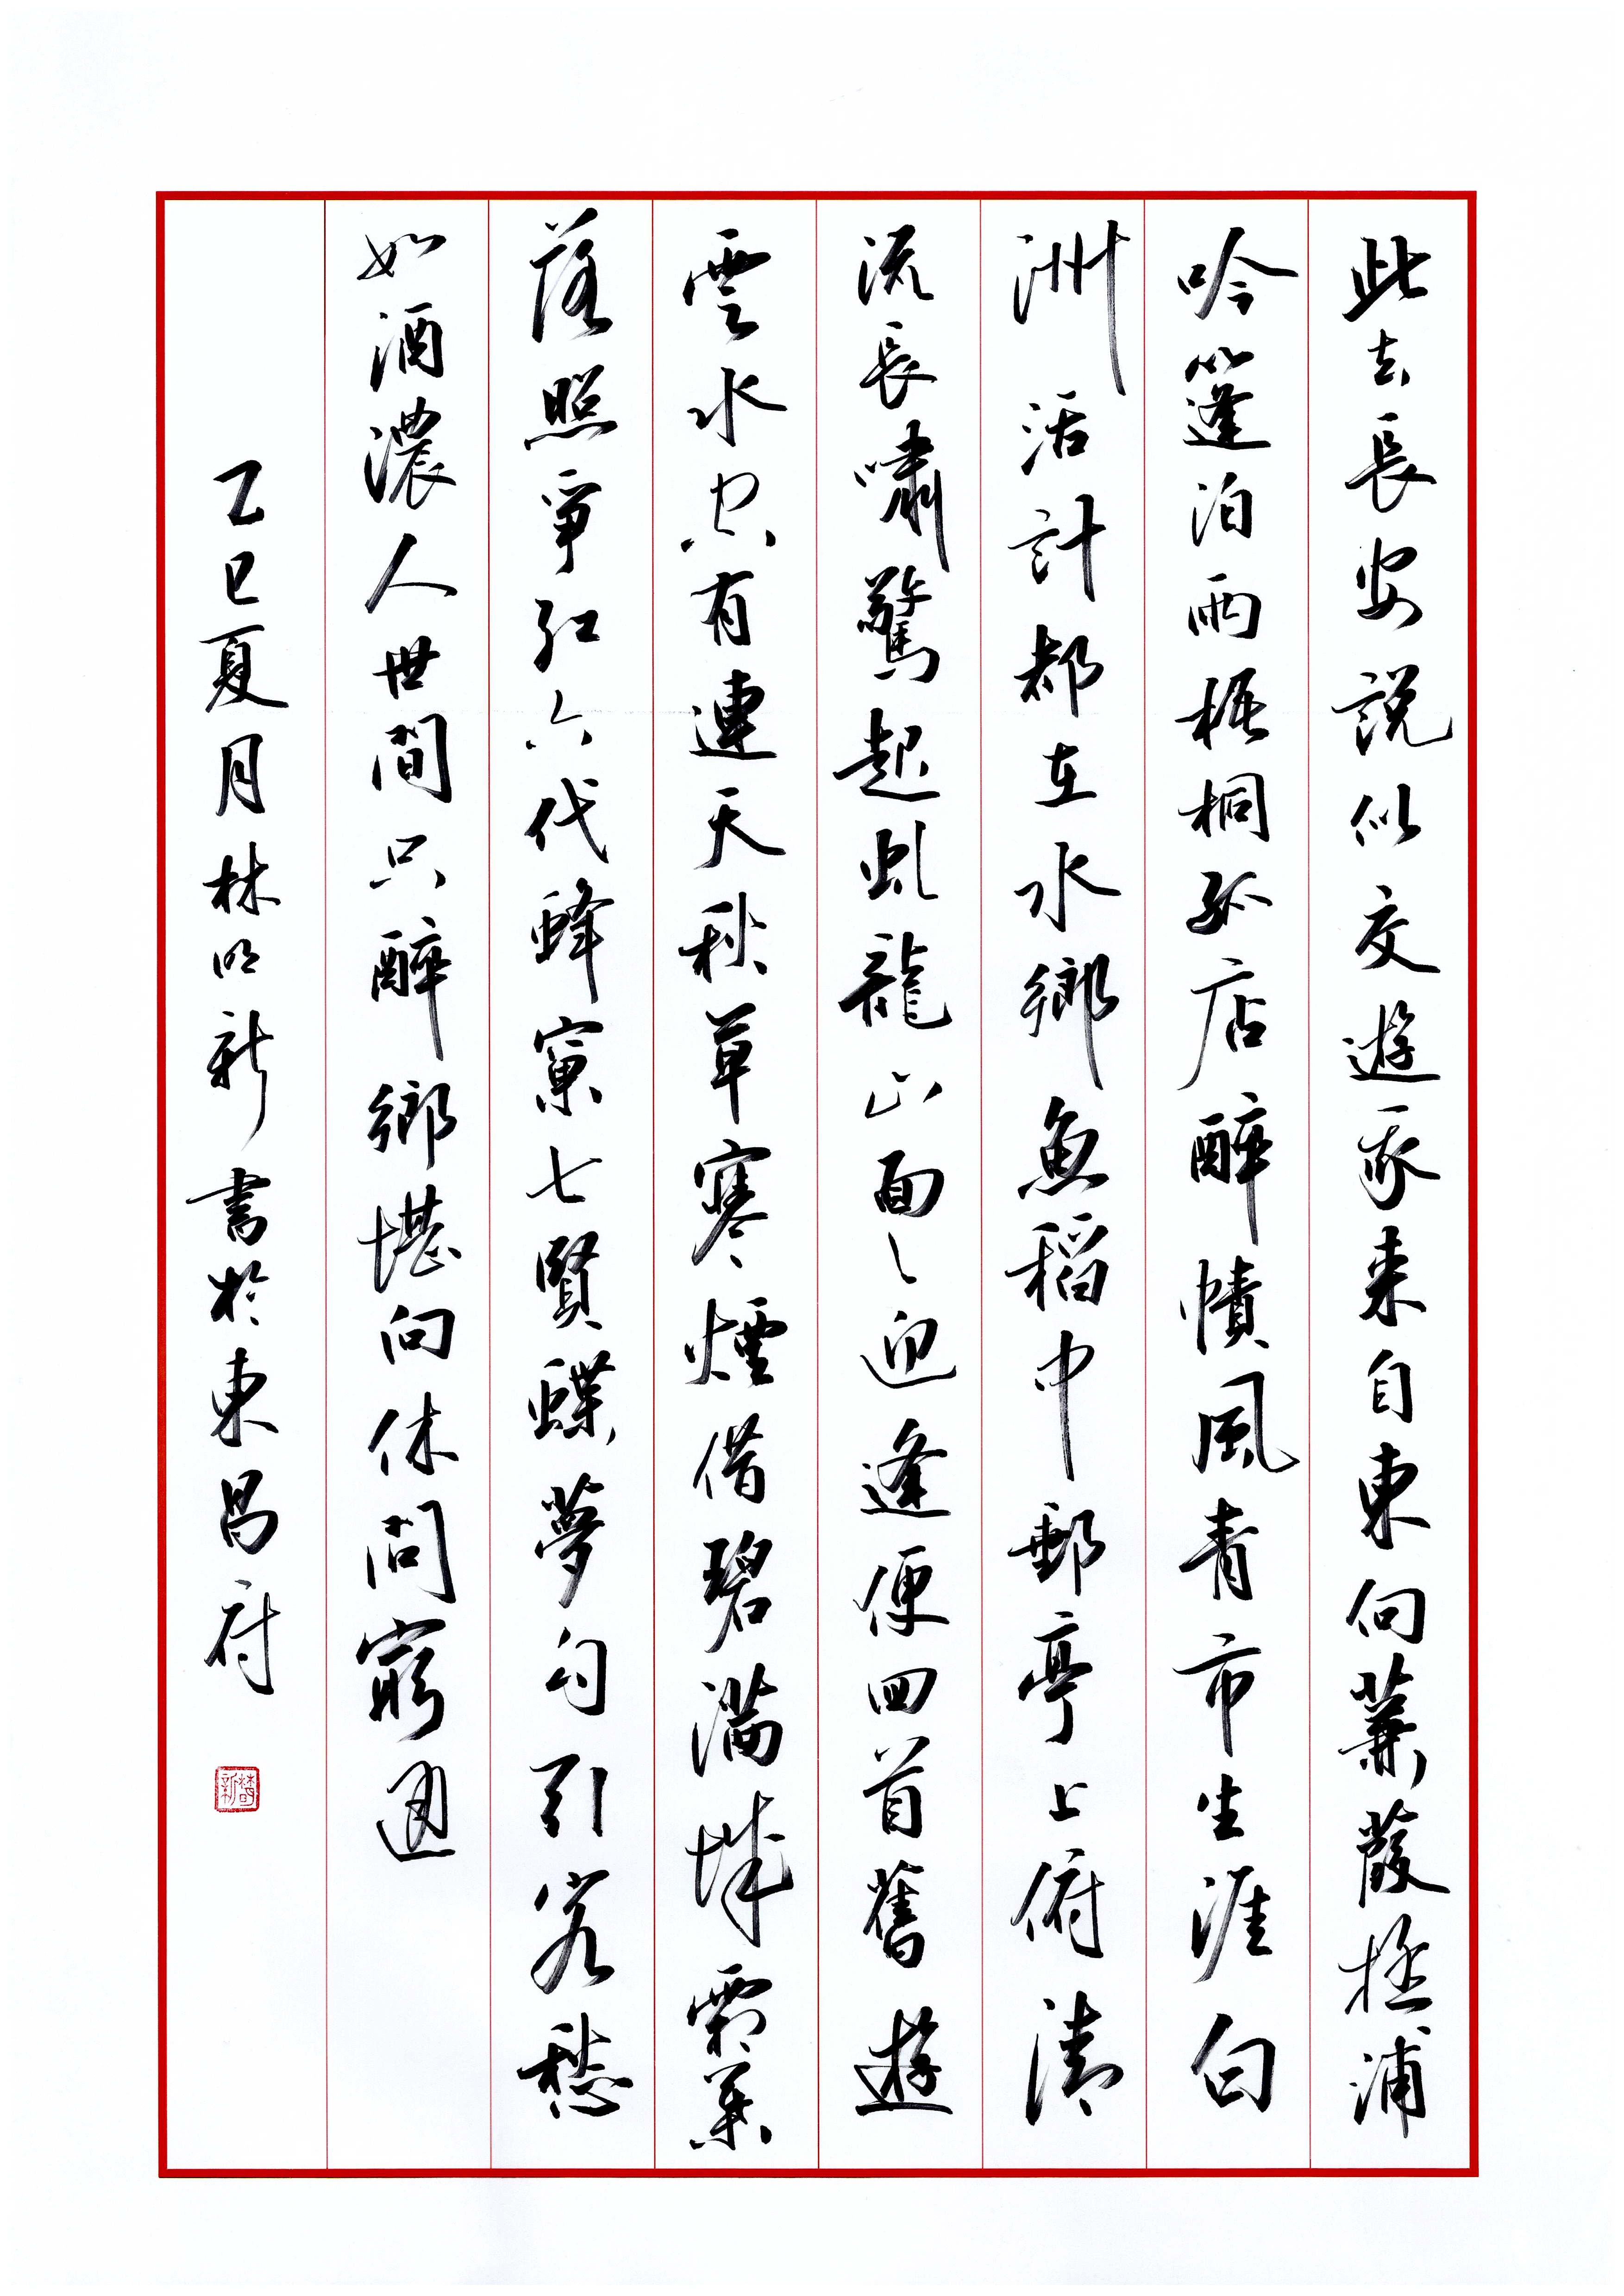 此去長安說似交遊我來自東向蒹葭極浦
吟篷泊雨梧桐孤店醉幘風青市生涯白
洲活計都在水鄉魚稻中郵亭上俯清
流長嘯驚起虬龍山面々迎逢便回首舊遊
雲水空有連天秋草寒煙借碧滿城霜葉
落照爭紅六代蜂窠七賢蝶夢勾引客愁
如酒濃人世間只醉鄉堪向休問窮通
乙巳夏月林明新書於東昌府